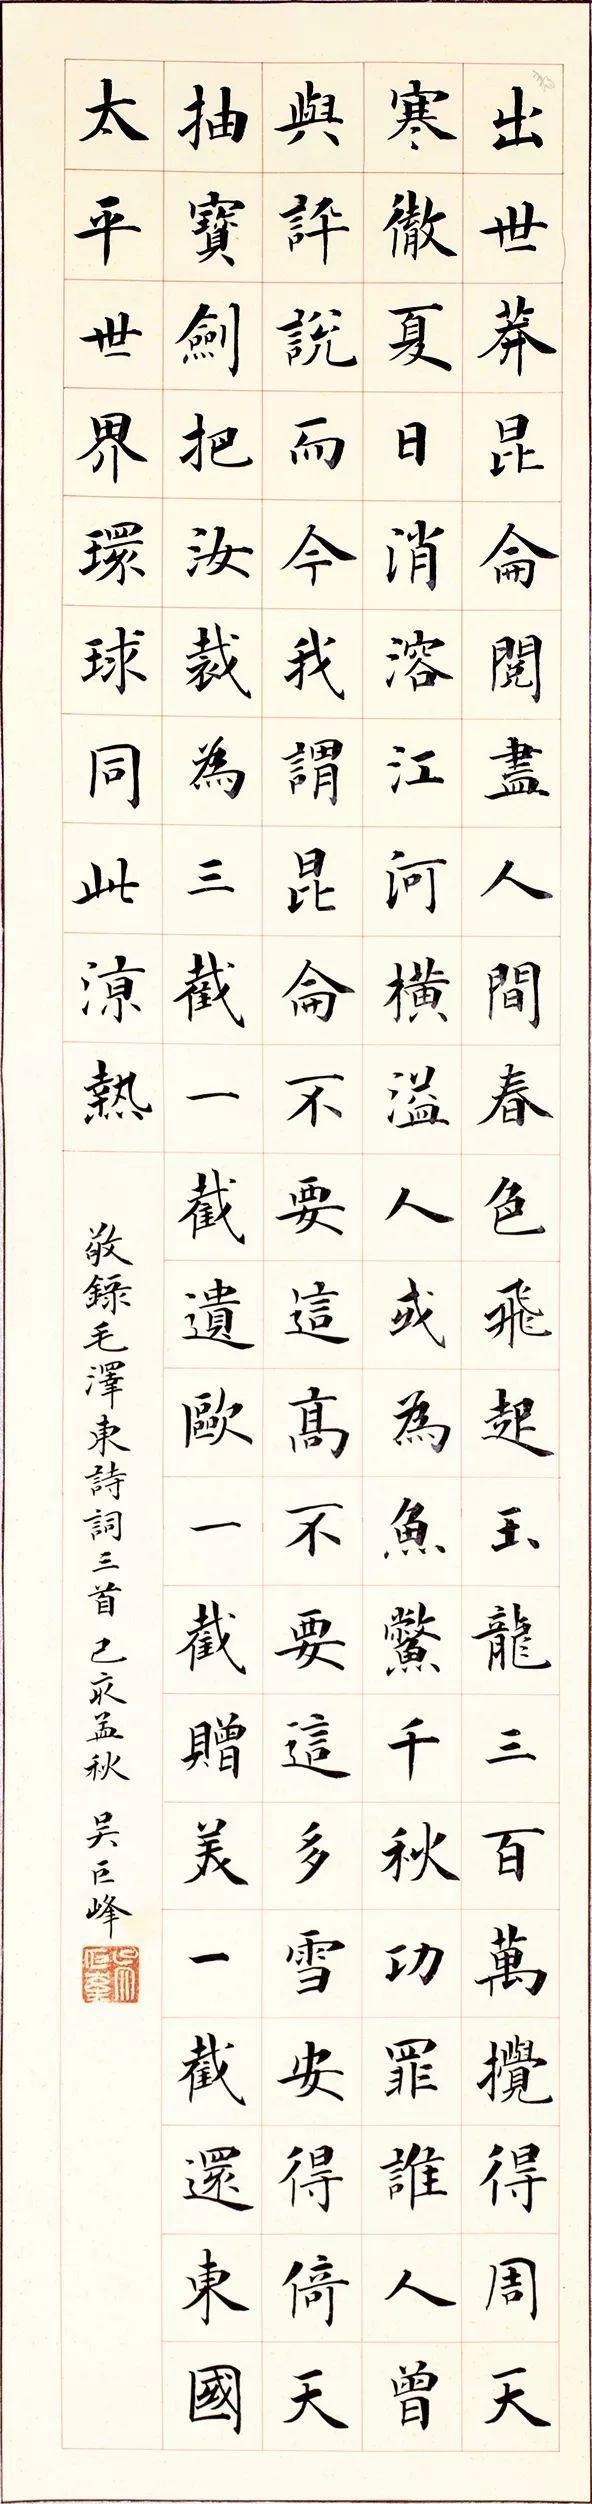 出世莽昆侖閱盡人間春色飛起玉龍三百萬攪得周天
寒徹夏日消溶江河橫溢人或為魚鱉千秋功罪誰人曾
與評說而今我謂昆侖不要這高不要這多雪安得倚天
抽寶劍把汝裁為三截一截遺歐一截贈美一截還東國
太平世界環球同此涼熱
敬錄毛澤東詩詞三首 己亥孟秋 吳巨峰